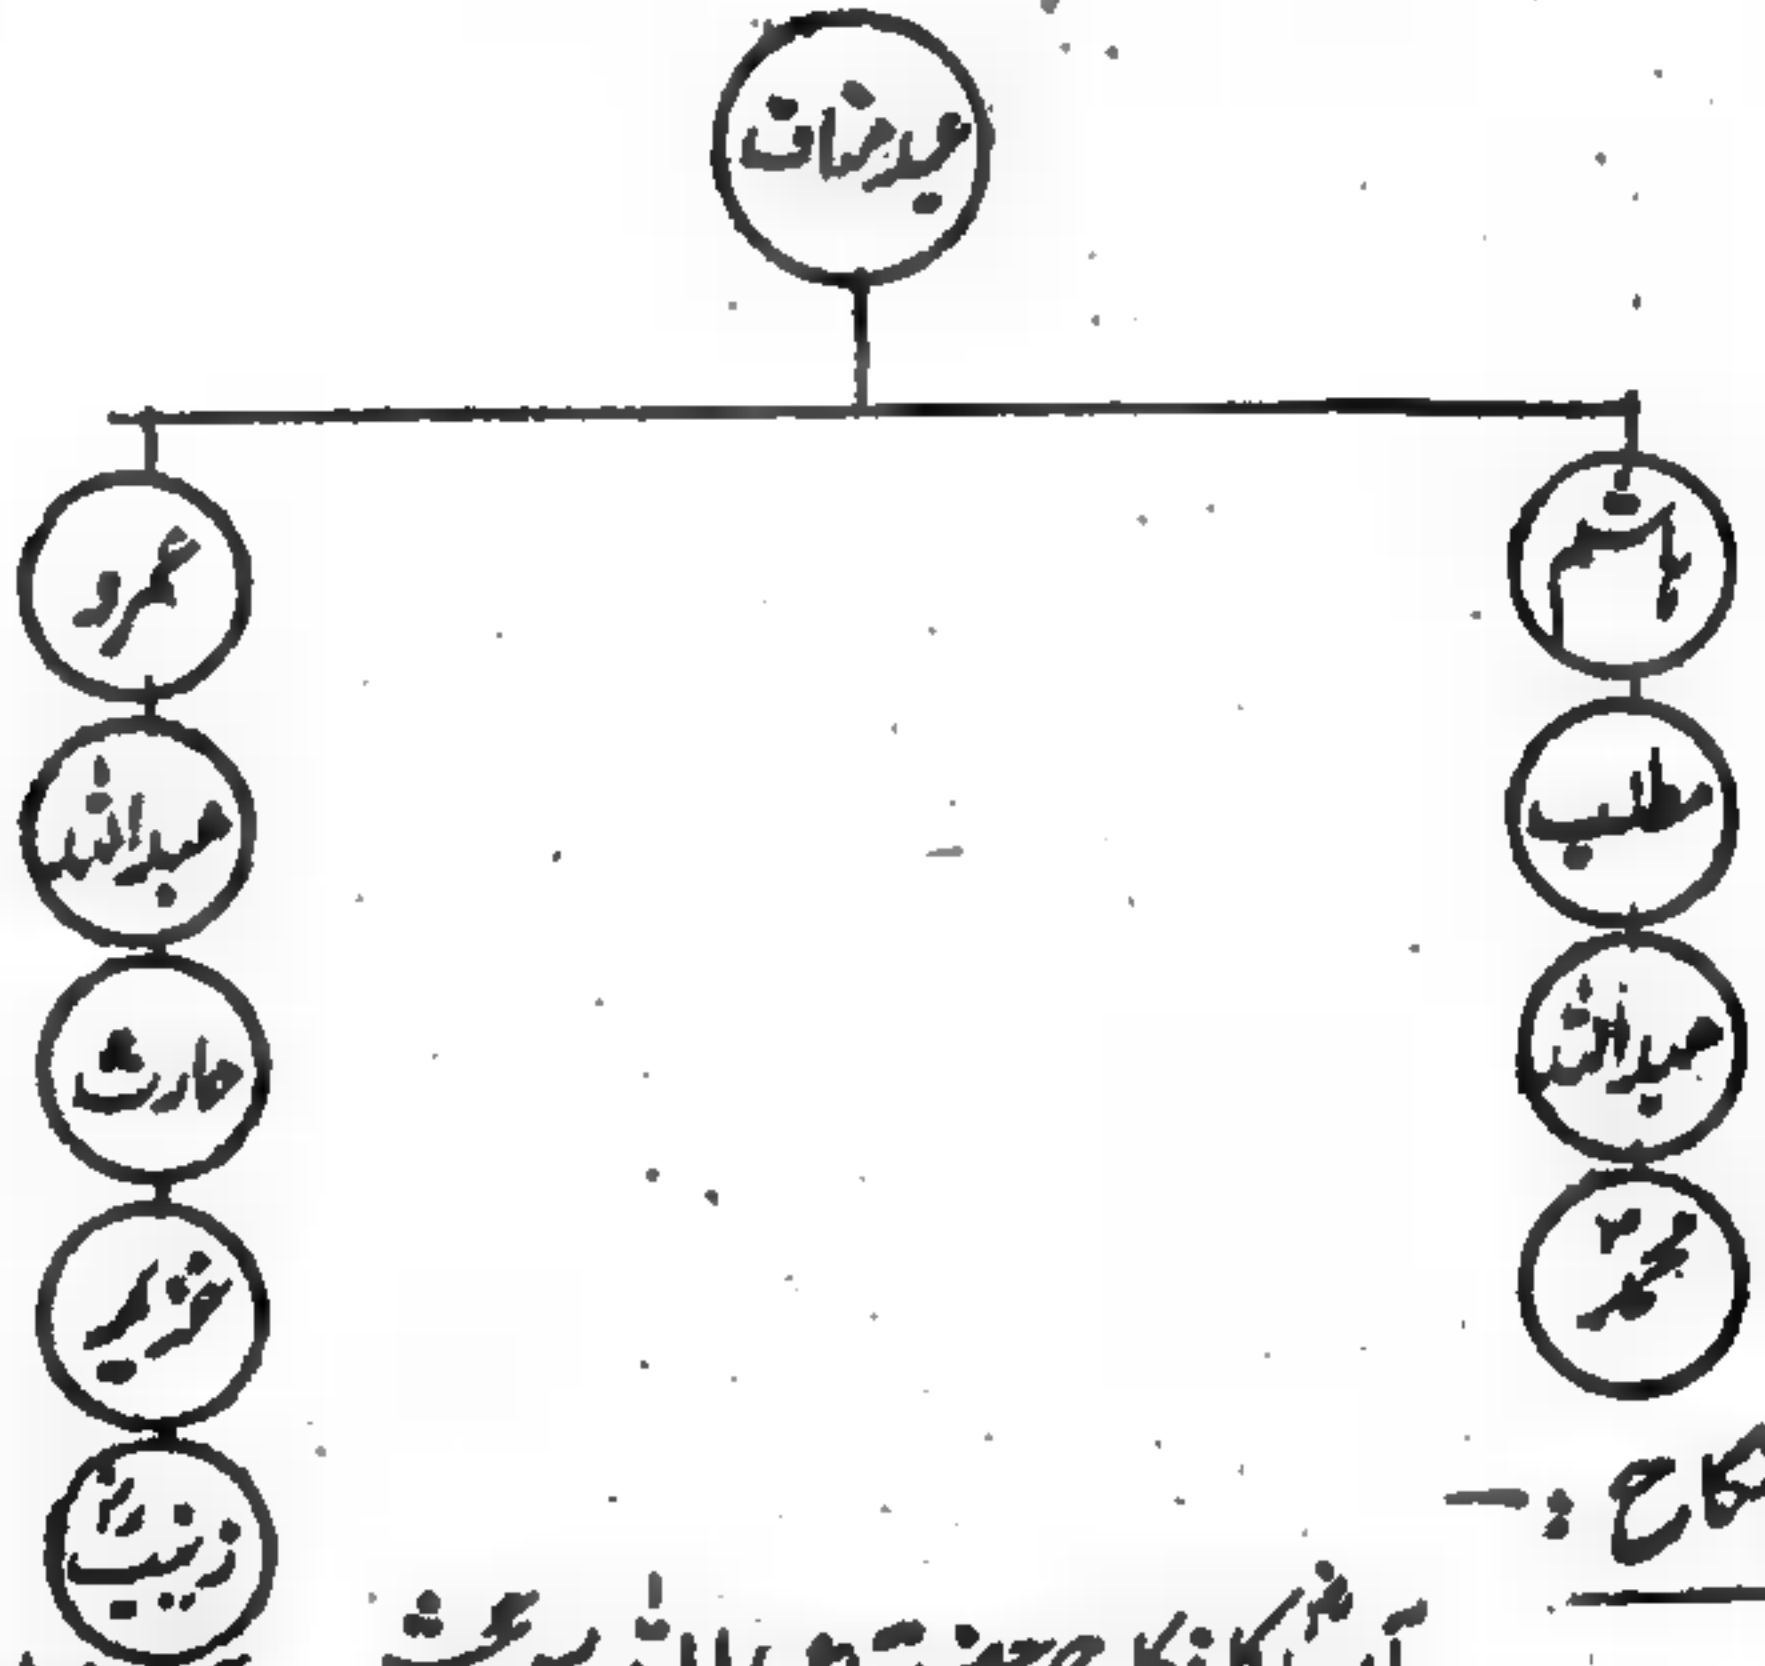 عبدمناف
ہاشم
مطلب
عبداللہ
محمدؐ
عمرو
عبداللہ
حارث
خزیمہ
زینبؓ
نکاح :-